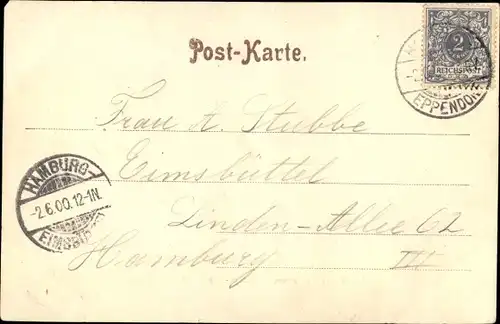 Post-Karte.
2
REICHSPOST
EPPENDORF
Frau A. Stubbe
Eimsbüttel
Linden-Allee 62
Hamburg III
HAMBURG-
-2.6.00.12-1N.
EIMSB